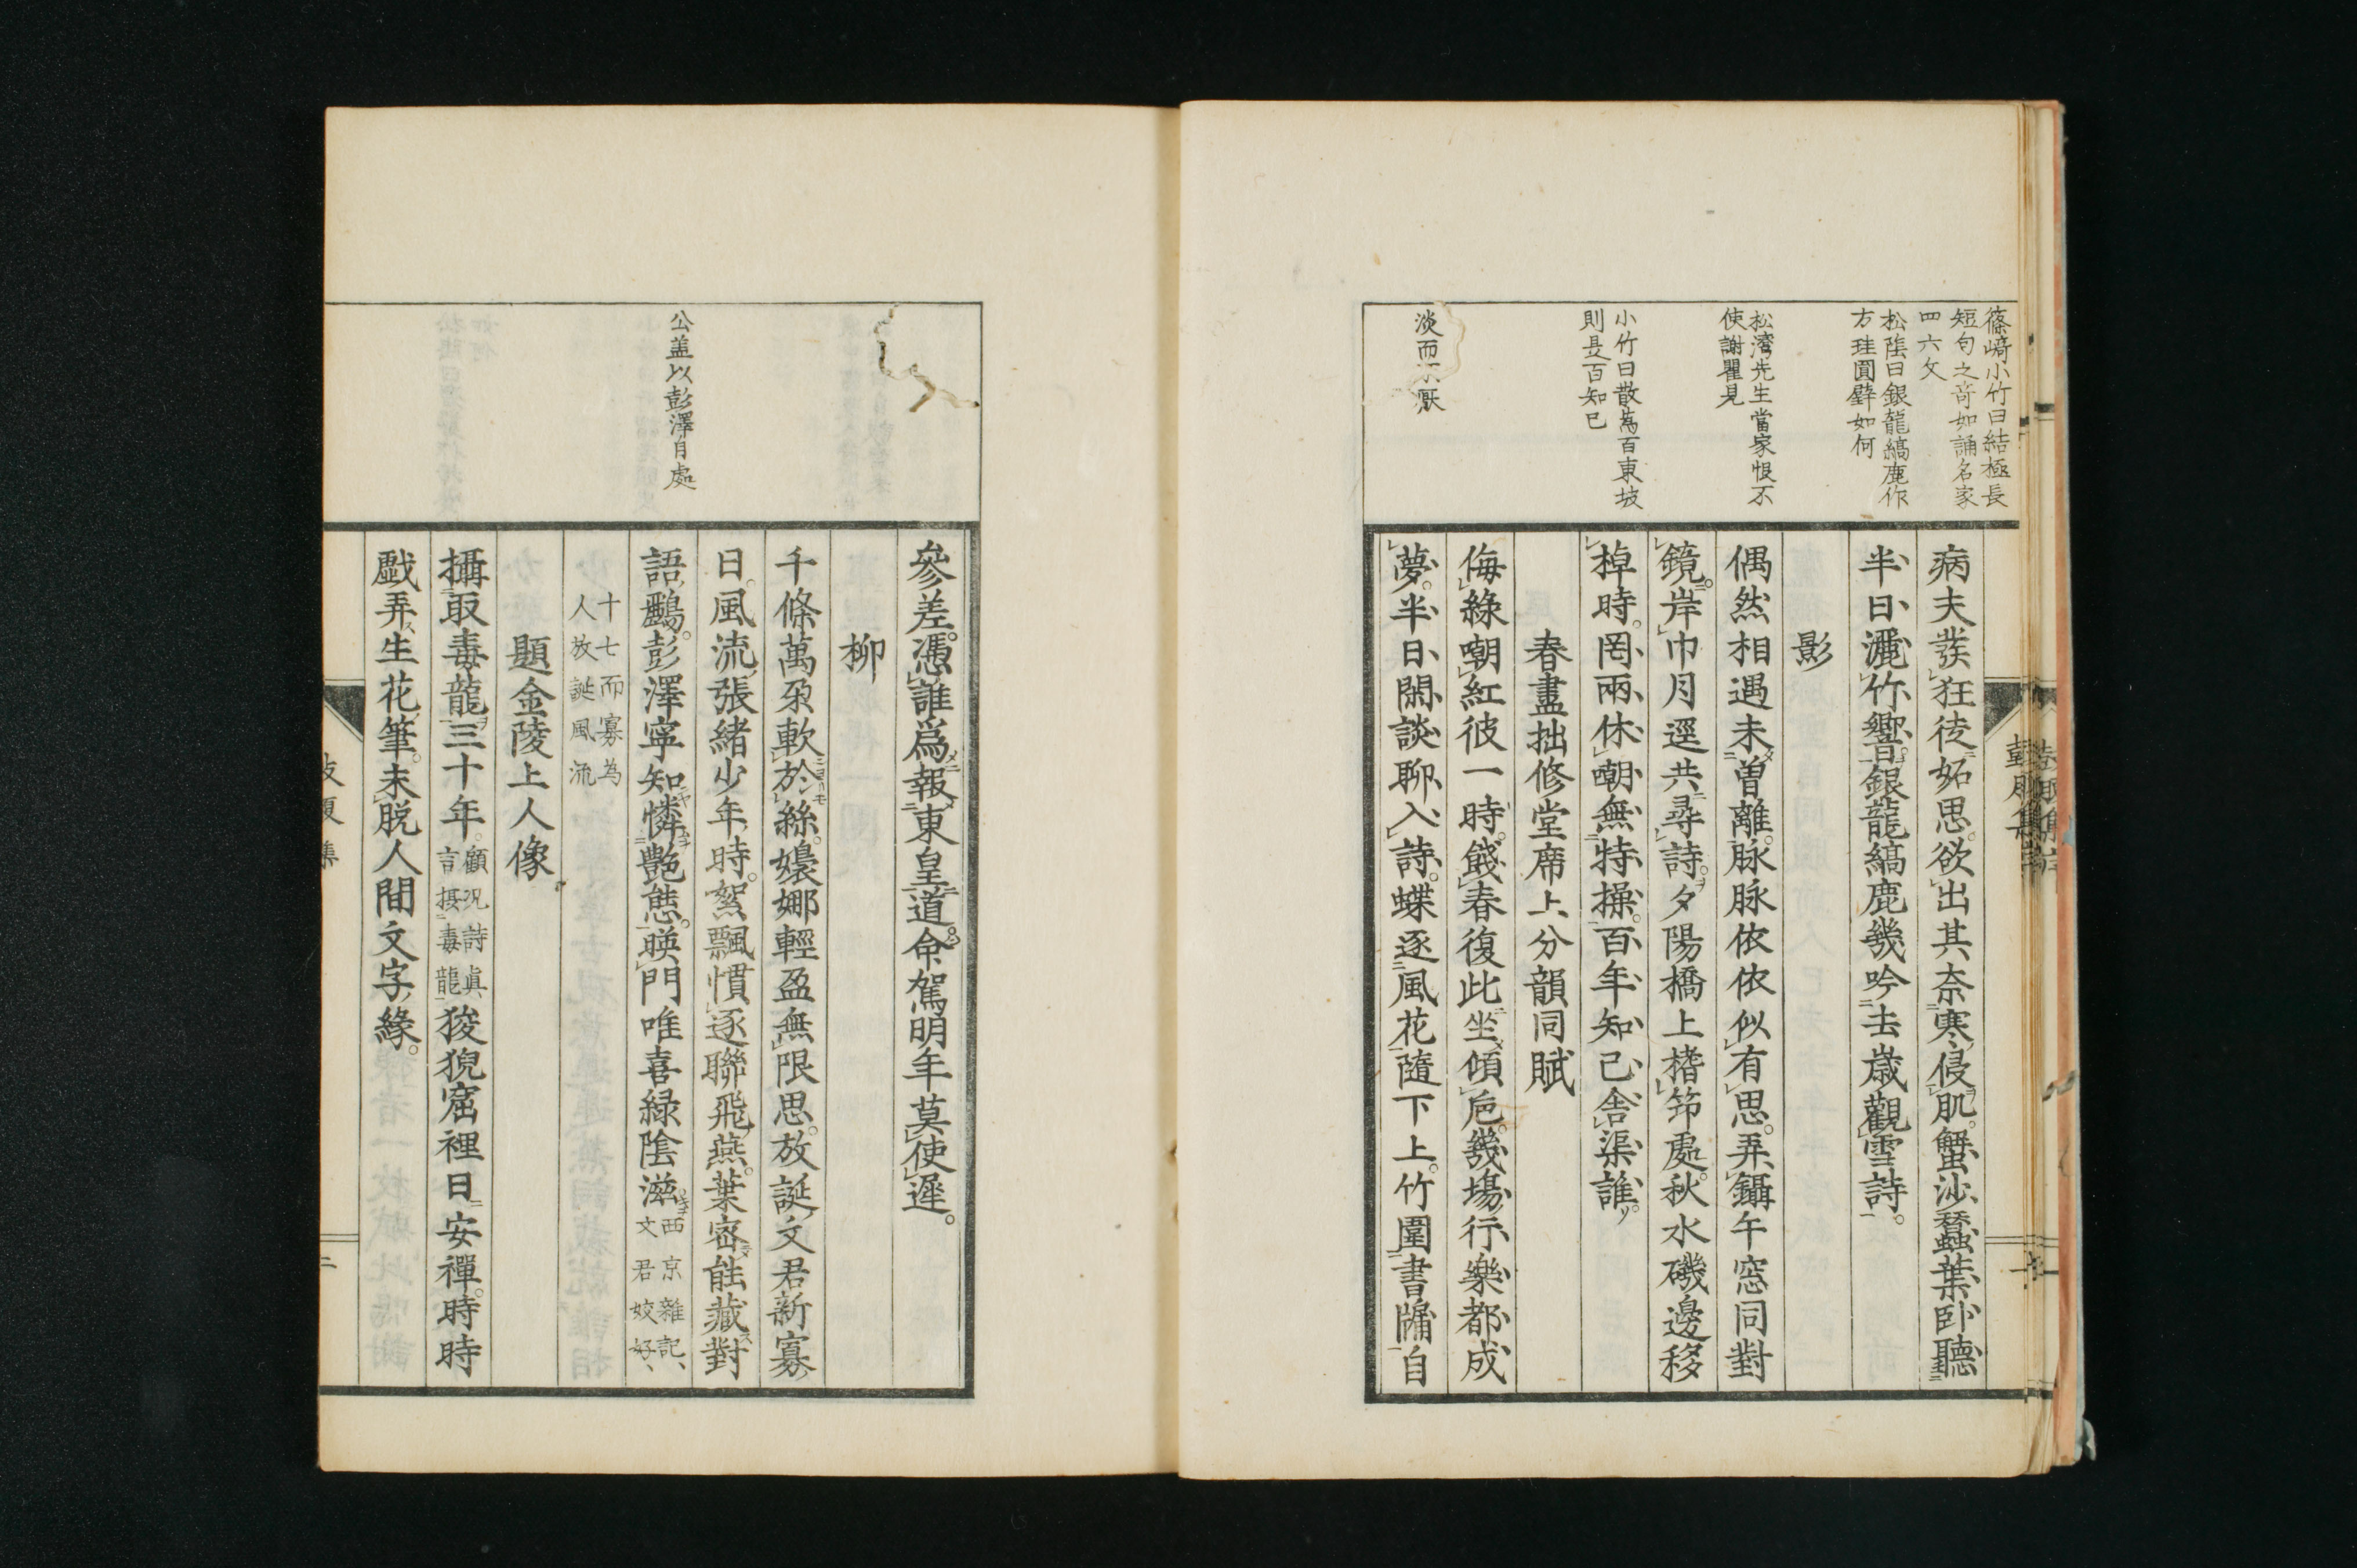 篠﨑小竹曰結極長
短句之奇如誦名家
四六文
松陰曰銀龍縞鹿作
方珪圓璧如何
松濤先生當家恨不
使謝瞿見
小竹曰散為百東坡
則是百知己
淡而不厭
病夫發狂徒妬思欲出其奈寒侵肌蟹沙蠶葉臥聽
半日灑竹響銀龍縞鹿幾吟去歳觀雪詩
影
偶然相遇未曽離脉脉依依似有思弄鑷午窓同對
鏡岸巾月逕共尋詩夕陽橋上搘笻處秋水磯邊移
棹時罔兩休嘲無特操百年知己舎渠誰
春盡拙修堂席上分韻同賦
侮綠嘲紅彼一時餞春復此坐傾巵幾場行樂都成
夢半日閑談聊入詩蝶逐風花隨下上竹圍書牖自
公盖以彭澤自處
參差憑誰爲報東皇道命駕明年莫使遲
柳
千條萬朶軟於絲嬝娜輕盈無限思放誕文君新寡
日風流張緒少年時絮飄慣逐聯飛燕葉密能藏對
語鸝彭澤寧知憐艶態暎門唯喜緑陰滋
西京雜記、
文君姣好、
十七而寡為
人放誕風流
題金陵上人像
攝取毒龍三十年
顧況詩眞
言摂毒龍
狻猊窟裡日安禪時時
戯弄生花筆未脱人間文字緣
二